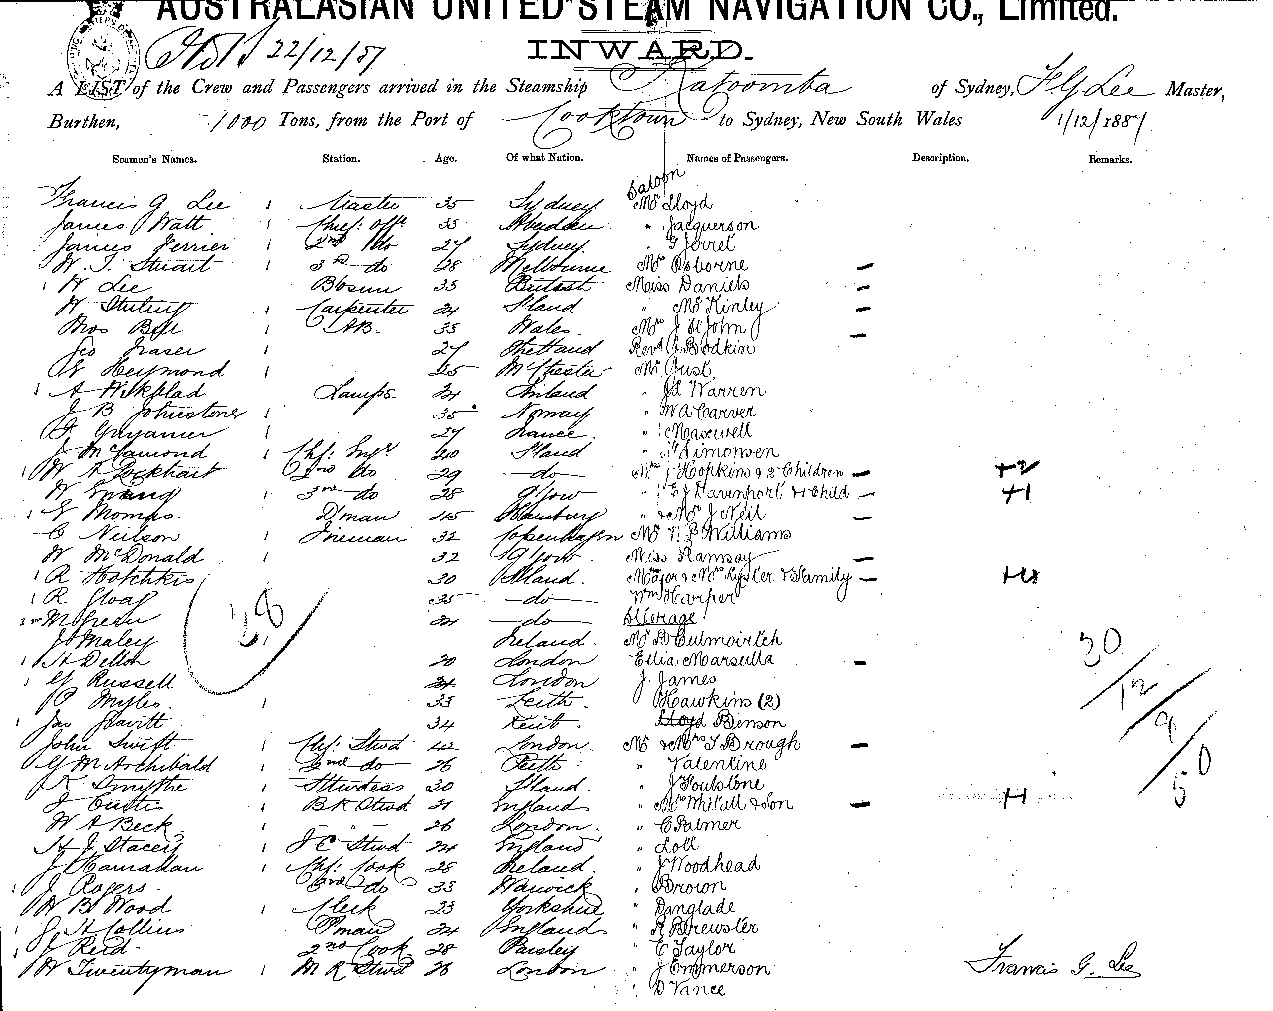 AUSTRALASIAN UNITED STEAM NAVIGATION CO., Limited.
22/12/87
INWARD.
A LIST of the Crew and Passengers arrived in the Steamship Katoomba of Sydney, F G Lee Master,
Burthen, 1000 Tons, from the Port of Cooktown to Sydney, New South Wales 1/12/1887
Seamen's Names. Station. Age. Of what Nation. Names of Passengers. Description. Remarks.
Saloon
Francis G Lee 1 Master 35 Sydney Mr Lloyd
James Watt 1 Chief Offr 33 Aberdeen " Jacquerson
James Perrier 1 2nd do 27 Sydney "
W. T. Stuart 1 3rd do 28 Melbourne Mrs Osborne –
1 W Lee Bosun 33 Belfast Miss Daniels –
W Stirling 1 Carpenter 24 S'land " McKinley –
Thos Bell 1 AB. 33 Wales. Mrs J St John –
Geo Fraser 1 27 Shetland Revd G Bodkin
Heymond 1 25 M'Chester Mr Just
1 A Wikblad Lamps 24 Finland " Warren
J B Johnstone 1 35 Norway " W A Carver
1 27 France " Maxwell
J McCamond 1 Chf: Engr 40 S'land "
1 W A Lockhart 2nd do 29 do Mrs Hopkins & 2 Children – +2
W 3rd do 28 G'gow " E J Davenport & Child – +1
1 Thomas D'man 45 Hamburg " Mrs J Neil –
C Neilson Fireman 32 Copenhagen Mr T P Williams
W McDonald 1 32 G'gow Miss Ramsay –
1 R Hotchkis 30 S'land. Major & Mrs & Family –
1 R Gloag 35 do Wm Harper
28
24 do Steerage
Maley Ireland. Mr D Culmoirteh
20
1 H Dellon 20 London Ellia Marsella –
1 Russell 24 London J. James
12
Myles 33 Leith Hawkins (2)
1 Jas 34 Kent Lloyd Benson
9
John Swift Chf: Stwd 42 London Mr & Mrs T Brough –
G M Archibald 2nd do 26 Leith " Valentine
50
K Smythe Stwdess 30 S'land. " J Foulstone
J Curtis B R Stwd 21 England " Mrs & Son –
W A Beck 26 London. " C Palmer
H J Stacey F C Stwd 24 England " Loll
J Hannahan Chf: Cook 28 Ireland. " J Woodhead
1 J Rogers 3rd do 33 Warwick " Brown
1 W B Wood 1 Clerk 23 Yorkshire " Danglade
H Collins P'man 24 England " R Brewster
1 J Reid 2nd Cook 28 Paisley " E Taylor
W Twentyman 1 M R Stwd 26 London " J Emmerson
Francis G. Lee
" D Vance